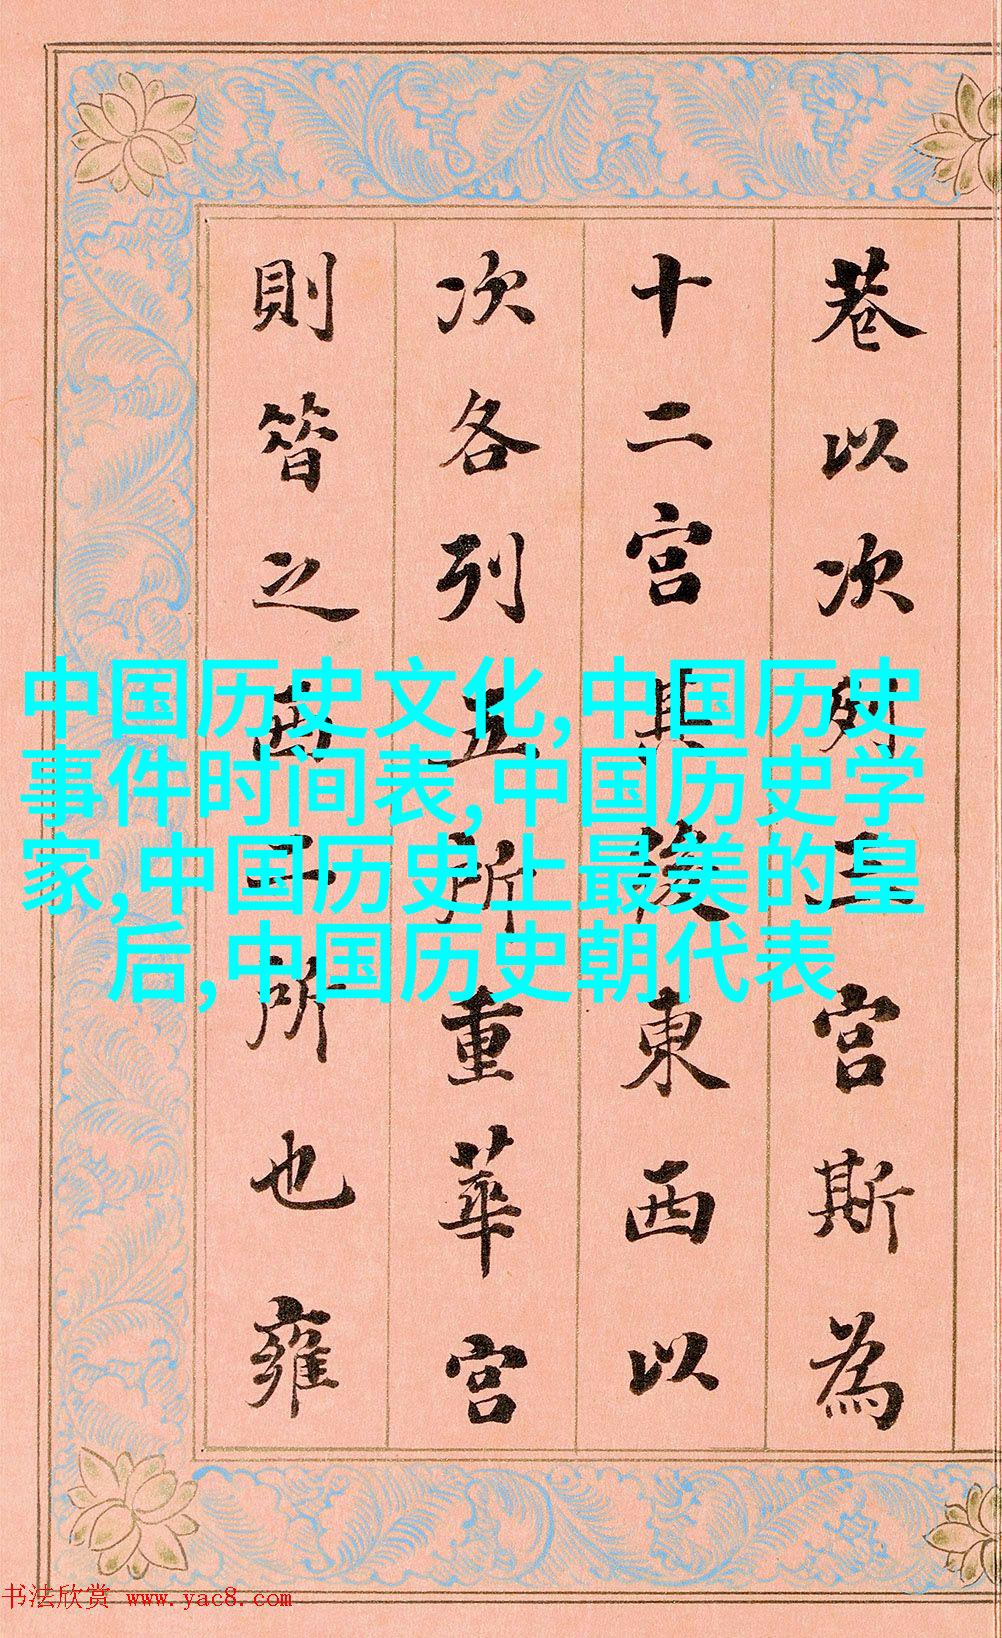 巷以次列三宮斯為
十二宮其後東西以
次各列五所重華宮
則昔之西二所也雍
中国历史文化,中国历史
事件时间表,中国历史学
家,中国历史上最美的皇
后,中国历史朝代表
书法欣赏 www.yac8.com